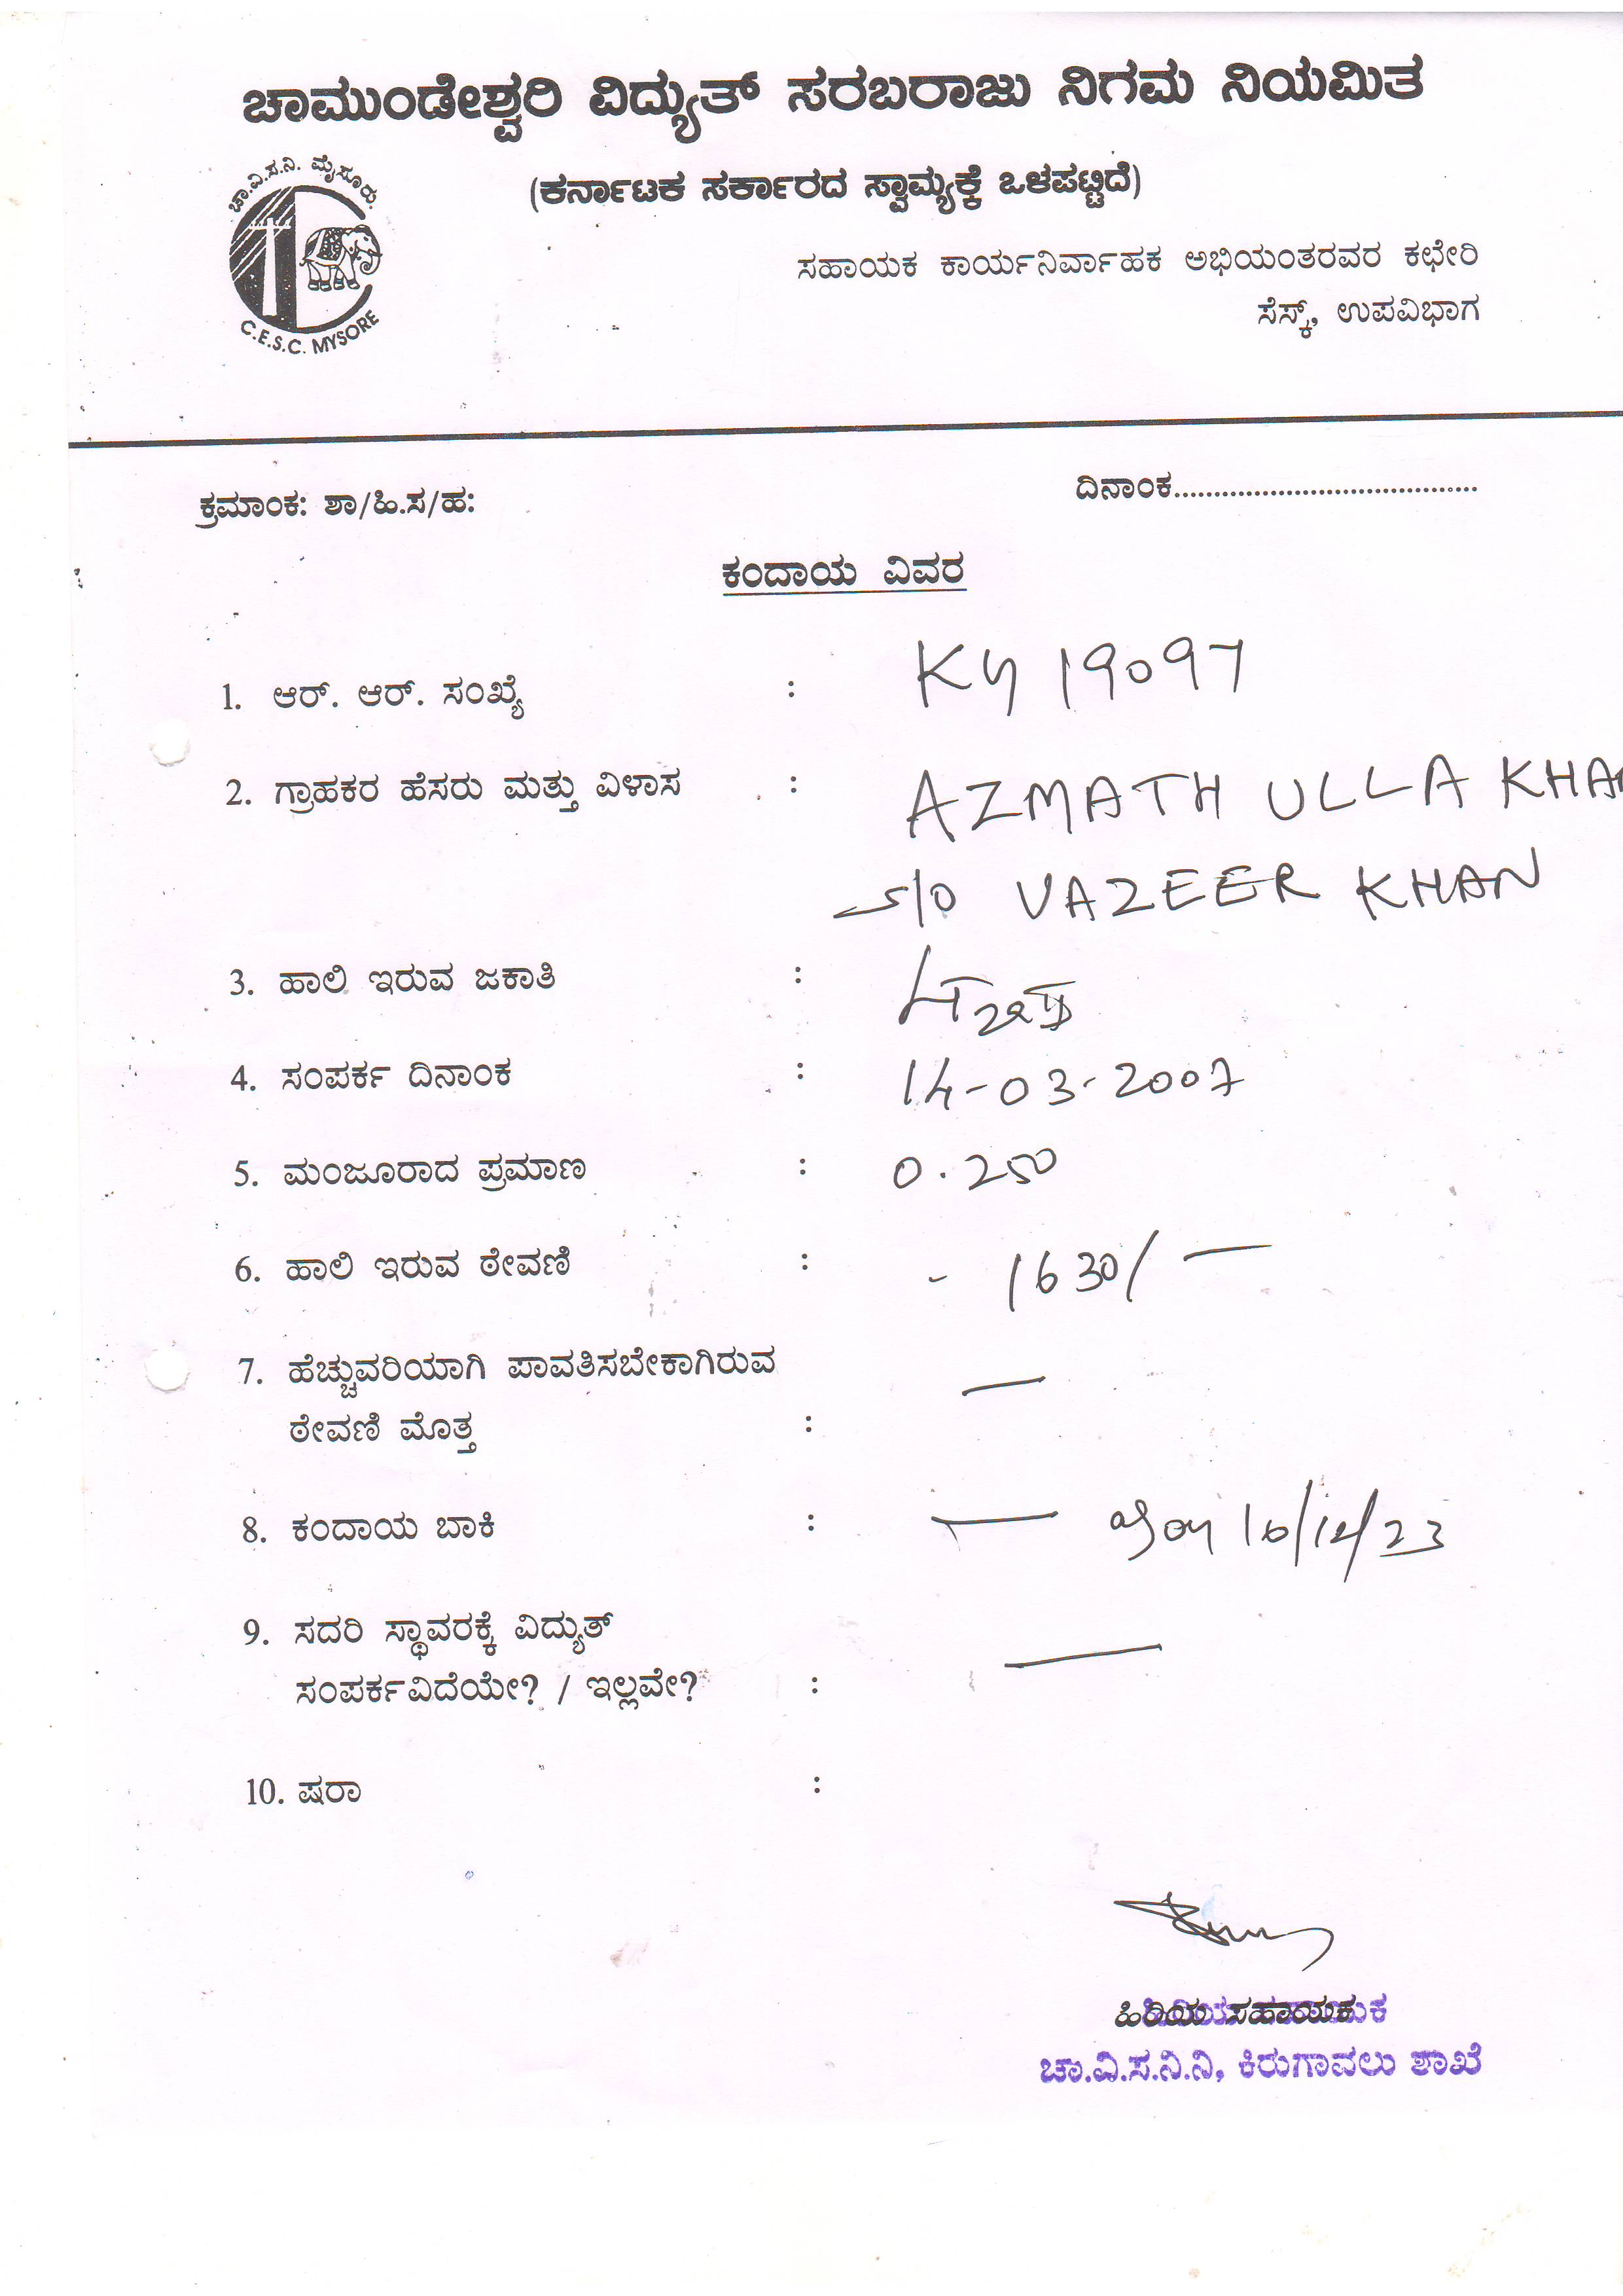 ಚಾಮುಂಡೇಶ್ವರಿ ವಿದ್ಯುತ್ ಸರಬರಾಜು ನಿಗಮ ನಿಯಮಿತ
(ಕರ್ನಾಟಕ ಸರ್ಕಾರದ ಸ್ವಾಮ್ಯಕ್ಕೆ ಒಳಪಟ್ಟಿದೆ)
ಚಾ.ವಿ.ಸ.ನಿ. ಮೈಸೂರು.
C.E.S.C. MYSORE
ಸಹಾಯಕ ಕಾರ್ಯನಿರ್ವಾಹಕ ಅಭಿಯಂತರವರ ಕಛೇರಿ
ಸೆಸ್ಕ್, ಉಪವಿಭಾಗ
ಕ್ರಮಾಂಕ: ಶಾ/ಹಿ.ಸ/ಹ: ದಿನಾಂಕ......................................
ಕಂದಾಯ ವಿವರ
1. ಆರ್. ಆರ್. ಸಂಖ್ಯೆ : Ky 19097
2. ಗ್ರಾಹಕರ ಹೆಸರು ಮತ್ತು ವಿಳಾಸ : AZMATH ULLA KHAN
S/O VAZEER KHAN
3. ಹಾಲಿ ಇರುವ ಜಕಾತಿ :
4. ಸಂಪರ್ಕ ದಿನಾಂಕ : 14-03-2007
5. ಮಂಜೂರಾದ ಪ್ರಮಾಣ : 0.250
6. ಹಾಲಿ ಇರುವ ಠೇವಣಿ : - 1630/-
7. ಹೆಚ್ಚುವರಿಯಾಗಿ ಪಾವತಿಸಬೇಕಾಗಿರುವ
ಠೇವಣಿ ಮೊತ್ತ : —
8. ಕಂದಾಯ ಬಾಕಿ : — as on 16/12/23
9. ಸದರಿ ಸ್ಥಾವರಕ್ಕೆ ವಿದ್ಯುತ್
ಸಂಪರ್ಕವಿದೆಯೇ? / ಇಲ್ಲವೇ? : —
10. ಷರಾ :
ಹಿರಿಯ ಸಹಾಯಕ
ಚಾ.ವಿ.ಸ.ನಿ.ನಿ, ಕಿರುಗಾವಲು ಶಾಖೆ